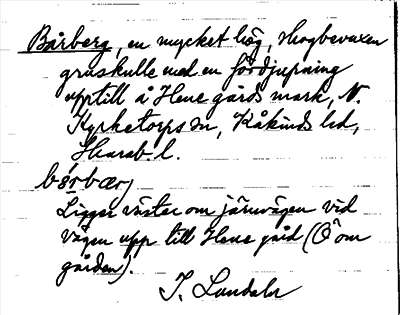 Bårberg, en mycket hög, skogbevuxen
gruskulle med en fördjupning
upptill å Hene gårds mark, N.
Kyrketorps sn, Kåkinds hd,
Skarab. l.
bórbærj
Ligger väster om järnvägen vid
vägen upp till Hene gård (Ö om
gården).
J. Lundahl